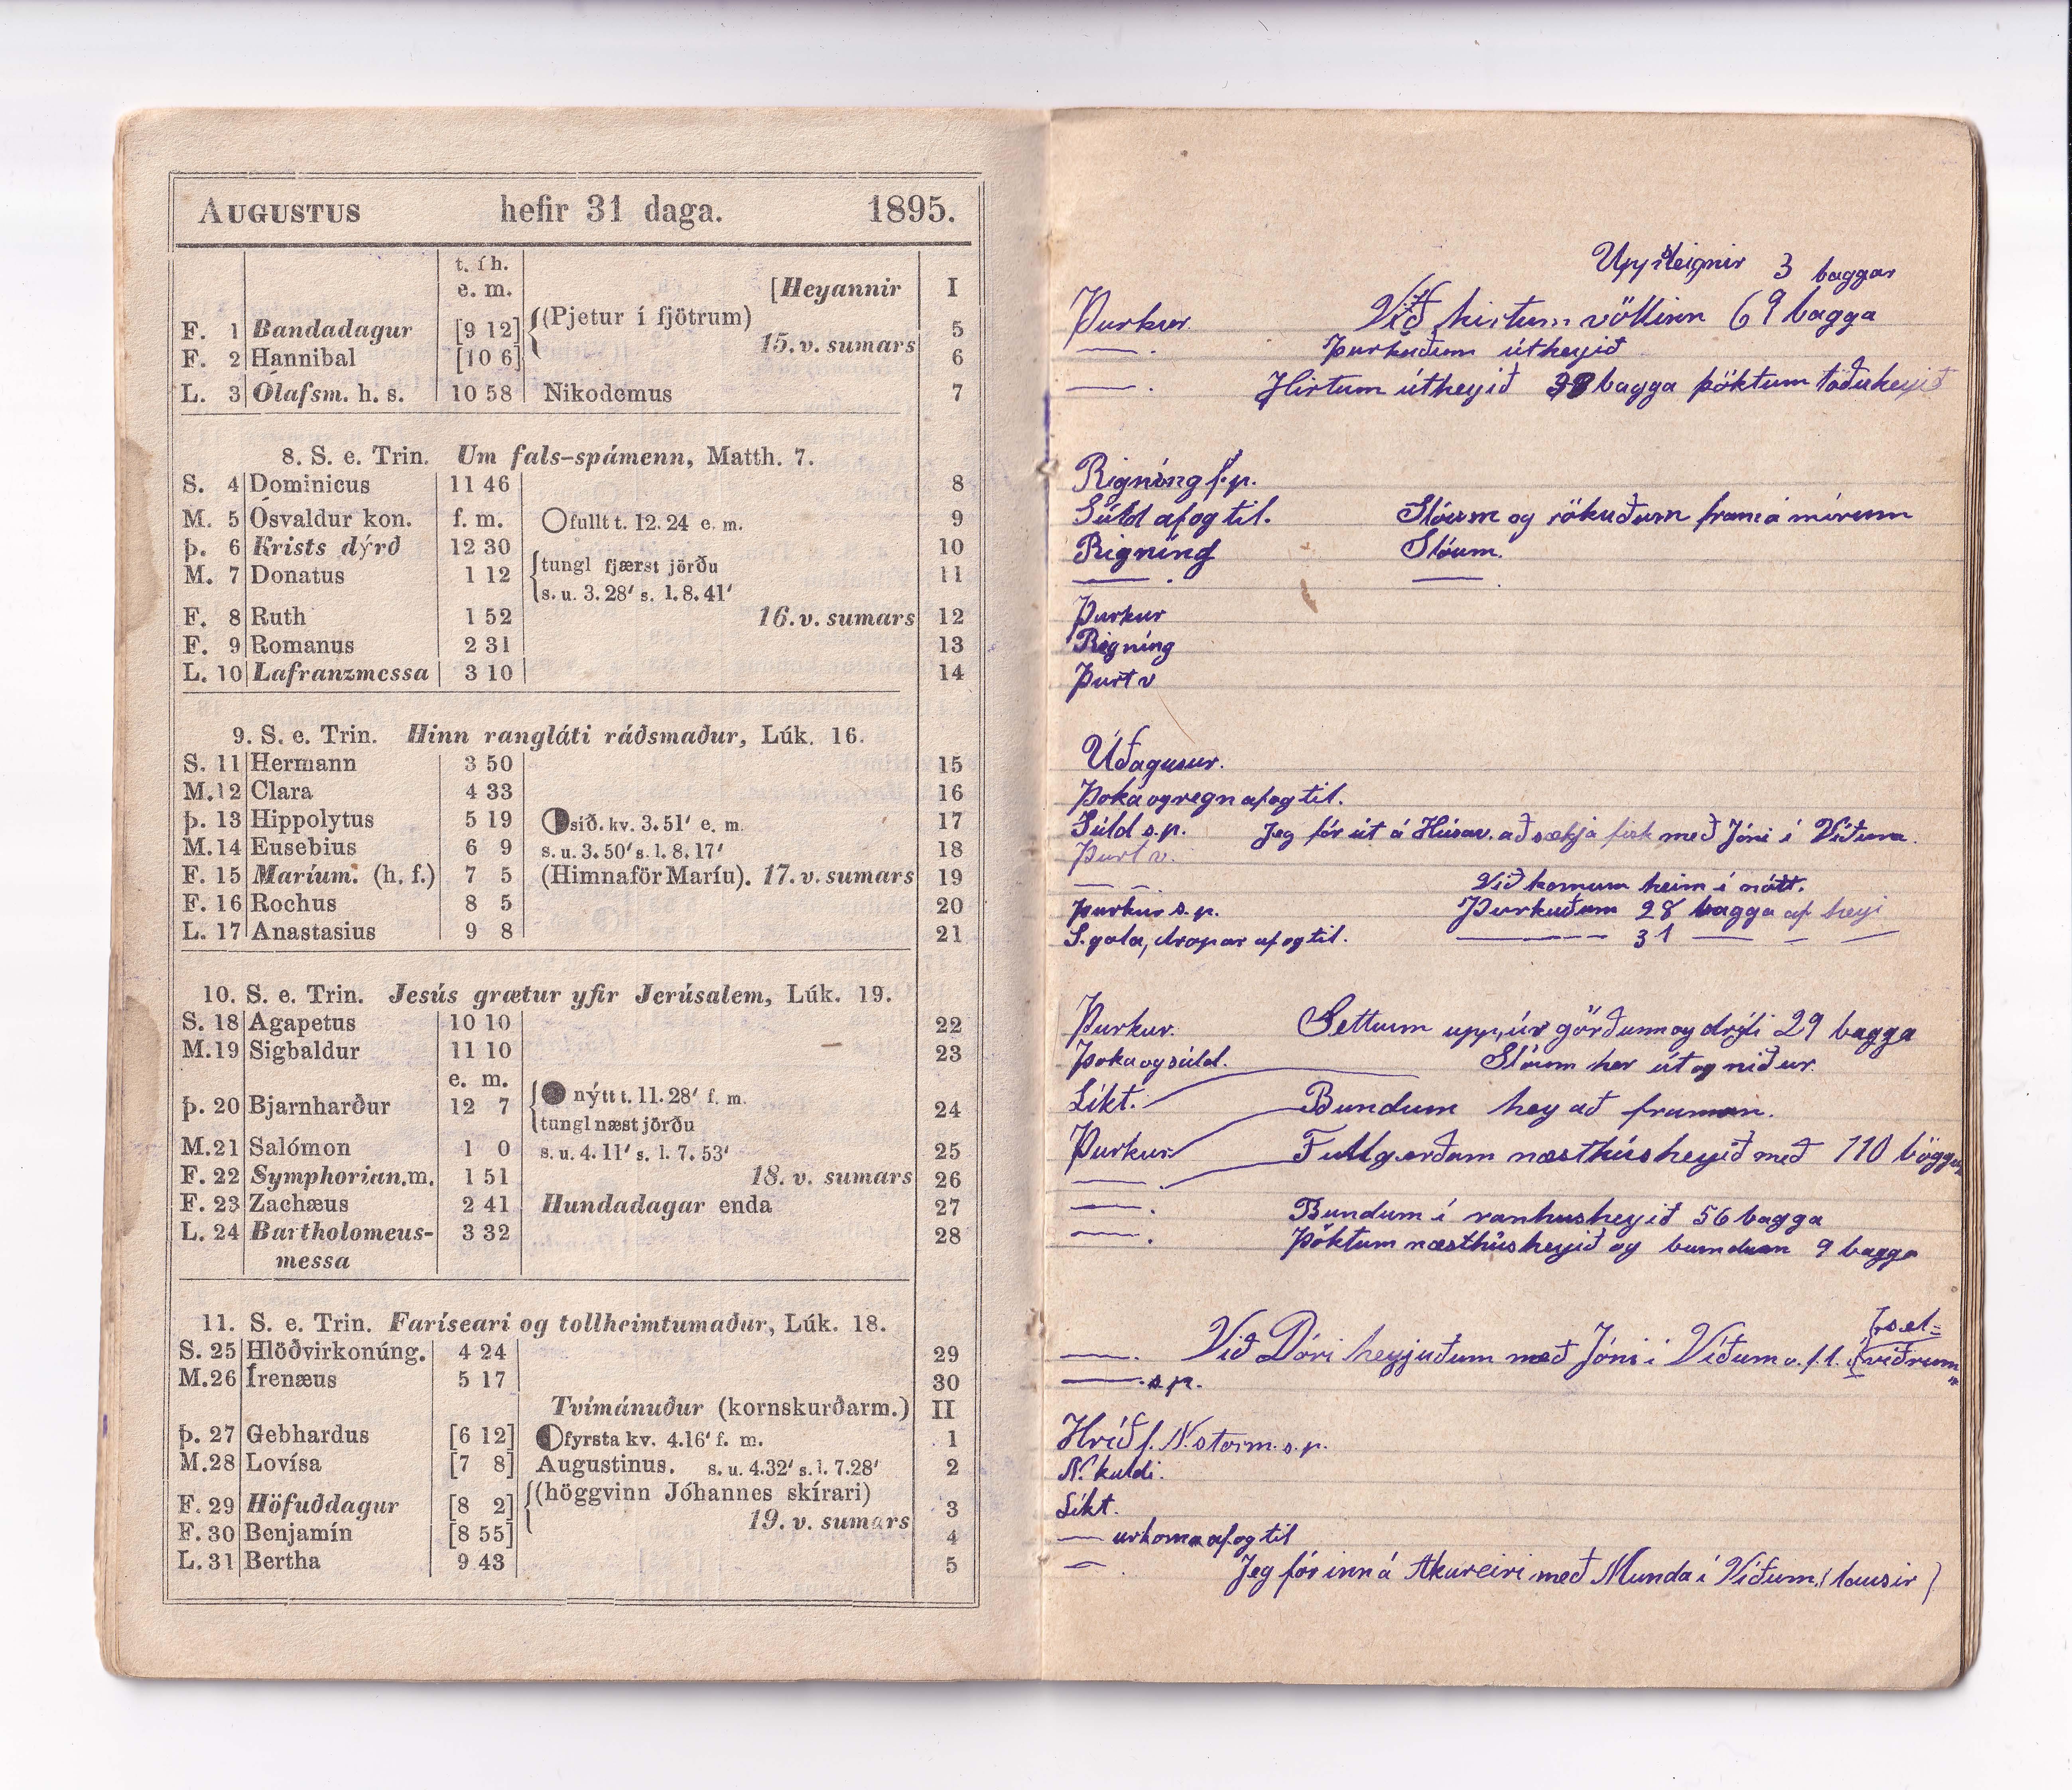 AUGUSTUS hefir 31 daga. 1895.
t. í h.
e. m. [Heyannir I
F. 1 Bandadagur [9 12] (Pjetur í fjötrum) 5
F. 2 Hannibal [10 6] 15. v. sumars 6
L. 3 Ólafsm. h. s. 10 58 Nikodemus 7
8. S. e. Trin. Um fals-spámenn, Matth. 7.
S. 4 Dominicus 11 46 8
M. 5 Ósvaldur kon. f. m. fullt t. 12. 24 e. m. 9
þ. 6 Krists dýrð 12 30 10
tungl fjærst jörðu
M. 7 Donatus 1 12 11
s. u. 3. 28' s. l. 8. 41'
F. 8 Ruth 1 52 16. v. sumars 12
F. 9 Romanus 2 31 13
L. 10 Lafranzmessa 3 10 14
9. S. e. Trin. Hinn rangláti ráðsmaður, Lúk. 16.
S. 11 Hermann 3 50 15
M. 12 Clara 4 33 16
þ. 13 Hippolytus 5 19 síð. kv. 3. 51' e. m. 17
M. 14 Eusebius 6 9 s. u. 3. 50' s. l. 8. 17' 18
F. 15 Maríum. (h. f.) 7 5 (Himnaför Maríu). 17. v. sumars 19
F. 16 Rochus 8 5 20
L. 17 Anastasius 9 8 21
10. S. e. Trin. Jesús grætur yfir Jerúsalem, Lúk. 19.
S. 18 Agapetus 10 10 22
M. 19 Sigbaldur 11 10 23
e. m.
þ. 20 Bjarnharður 12 7 nýtt t. 11. 28' f. m. 24
tungl næst jörðu
M. 21 Salómon 1 0 s. u. 4. 11' s. l. 7. 53' 25
F. 22 Symphorian. m. 1 51 18. v. sumars 26
F. 23 Zachæus 2 41 Hundadagar enda 27
L. 24 Bartholomeus- 3 32 28
messa
11. S. e. Trin. Faríseari og tollheimtumaður, Lúk. 18.
S. 25 Hlöðvirkonúng. 4 24 29
M. 26 Írenæus 5 17 30
Tvímánuður (kornskurðarm.) II
þ. 27 Gebhardus [6 12] fyrsta kv. 4. 16' f. m. 1
M. 28 Lovísa [7 8] Augustinus. s. u. 4.32' s. l. 7.28' 2
(höggvinn Jóhannes skírari)
F. 29 Höfuðdagur [8 2] 3
19. v. sumars
F. 30 Benjamín [8 55] 4
L. 31 Bertha 9 43 5
3 baggar
Þurkur. Við hirtum völlinn 69 bagga
—. Þurkuðum útheyið
—. Hirtum útheyið 38 bagga þöktum töðuheyið
Rigníng f.p.
Súld af og til. Slóum og rökuðum framá mírunn
Rigníng Slóum.
—. —.
Þurkur
Rigníng
Þurt v
Úðagusur.
Þoka og regn af og til.
Súld s.p. Jeg fór út á Húsav. að sækja fisk með Jóni í Víðum.
Þurt v.
— —. Við komum heim í nótt.
Þurkur s.p. Þurkuðum 28 bagga af heyi
S. gola, dropar af og til. — 31 — – —
Þurkur. Settum upp, úr görðum og drýli 29 bagga
Þoka og súld. Slóum her út og niður.
Líkt. Bundum hey að framan.
Þurkur Fullgerðum næsthúsheyið með 110 böggum
—.
—. Bundum í ranhusheyið 56 bagga
—. Þöktum næsthúsheyið og bundum 9 bagga
—. Við Dóri heyjuðum með Jóni í Víðum o. f. l. í "sel=
viðrum"
—. s.p.
Hríð f. N. storm. s.p.
N. kuldi.
Líkt.
— urkoma af og til
—. Jeg fór inn á Akureiri með Munda í Víðum, (lausir)